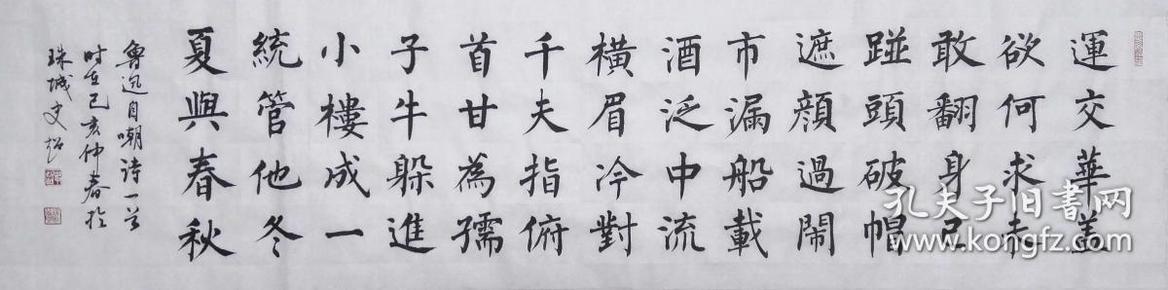 運交華盖
欲何求未
敢翻身已
踫頭破帽
遮顔過鬧
市漏船載
酒泛中流
橫眉冷對
千夫指俯
首甘為孺
子牛躲進
小樓成一
統管他冬
夏與春秋
魯迅自嘲诗一首
时在己亥仲春於
珠城文
孔夫子旧书网
www.kongfz.com